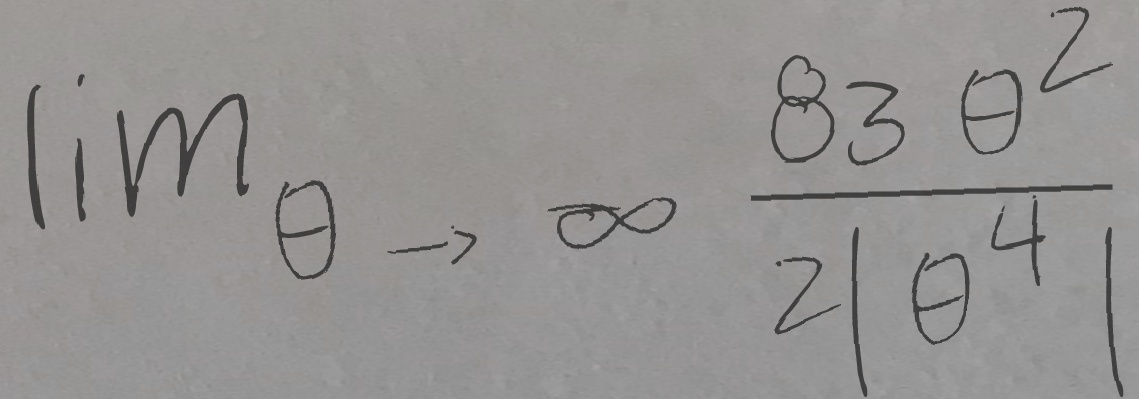 \lim_{\theta \to \infty} \frac{83 \theta^2}{2|\theta^4|}